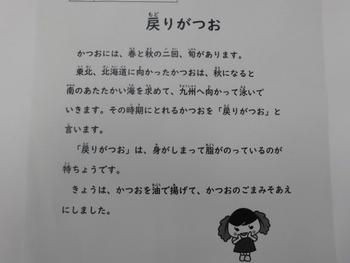 戻りがつお
かつおには、春と秋の二回、旬があります。
東北、北海道に向かったかつおは、秋になると
南のあたたかい海を求めて、九州へ向かって泳いで
いきます。その時期にとれるかつおを「戻りがつお」と
言います。
「戻りがつお」は、身がしまって脂がのっているのが
特ちょうです。
きょうは、かつおを油で揚げて、かつおのごまみそあえ
にしました。